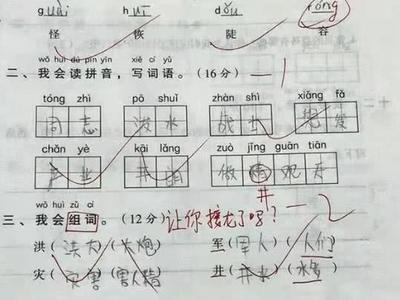 guài huī dǒu róng
怪 恢 陡 容
wǒ huì dú pīn yīn xiě cí yǔ
二、我会读拼音，写词语。(16分) —1
tóng zhì pō shuǐ zhàn shì xiāng fā
志 泼水 战士 发
chǎn yè kāi lǎng zuò jǐng guān tiān
产业 开朗 做 观天
井
wǒ huì zǔ cí
三、我会组词。(12分) 让你接龙了吗？—2
洪(洪大)(大炮) 军(军人)(人们)
灾(灾害)(害人精) 井(井水)(水果)